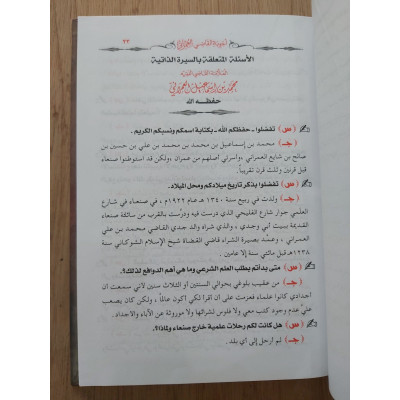 ٢٣
الأسئلة المتعلقة بالسيرة الذاتية
محمد بن إسماعيل العمراني
حفظه الله
(س) تفضلوا - حفظكم الله - بكتابة اسمكم ونسبكم الكريم.
(جـ) محمد بن إسماعيل بن محمد بن محمد بن علي بن حسين بن
صالح بن شايع العمراني، وأسرتي أصلهم من عمران، ولكن قد استوطنوا صنعاء
قبل قرنين وثلث قرن تقريباً.
(س) تفضلوا بذكر تاريخ ميلادكم ومحل الميلاد.
(جـ) ولدت في ربيع سنة ١٣٤٠هـ عام ١٩٢٢م، في صنعاء في شارع
العلمي جوار شارع الفليحي الذي درست فيه ودرّست بالقرب من سائلة صنعاء
القديمة ببيت أبي وجدي، والذي شراه والد جدي القاضي محمد بن علي
العمراني، وعمّد بصيرة الشراء قاضي القضاة شيخ الإسلام الشوكاني سنة
١٢٣٨هـ قبل مائتي سنة إلا عامين.
(س) متى بدأتم بطلب العلم الشرعي وما هي أهم الدوافع لذلك؟.
(جـ) من عقيب بلوغي بحوالي السنتين أو الثلاث سنين لأني سمعت أن
أجدادي كانوا علماء فعزمت على أن أقرأ لكي أكون عالماً، ولكن كان يصعب
عليّ عدم وجود كتب معي ولا فلوس لشرائها ولا موروثة عن الآباء والأجداد.
(س) هل كانت لكم رحلات علمية خارج صنعاء ولماذا؟.
(جـ) لم أرحل إلى أي بلد.